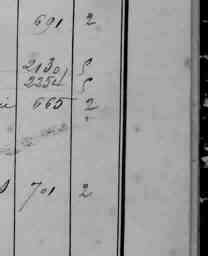 691 2
2130
2254
665 2
701 2